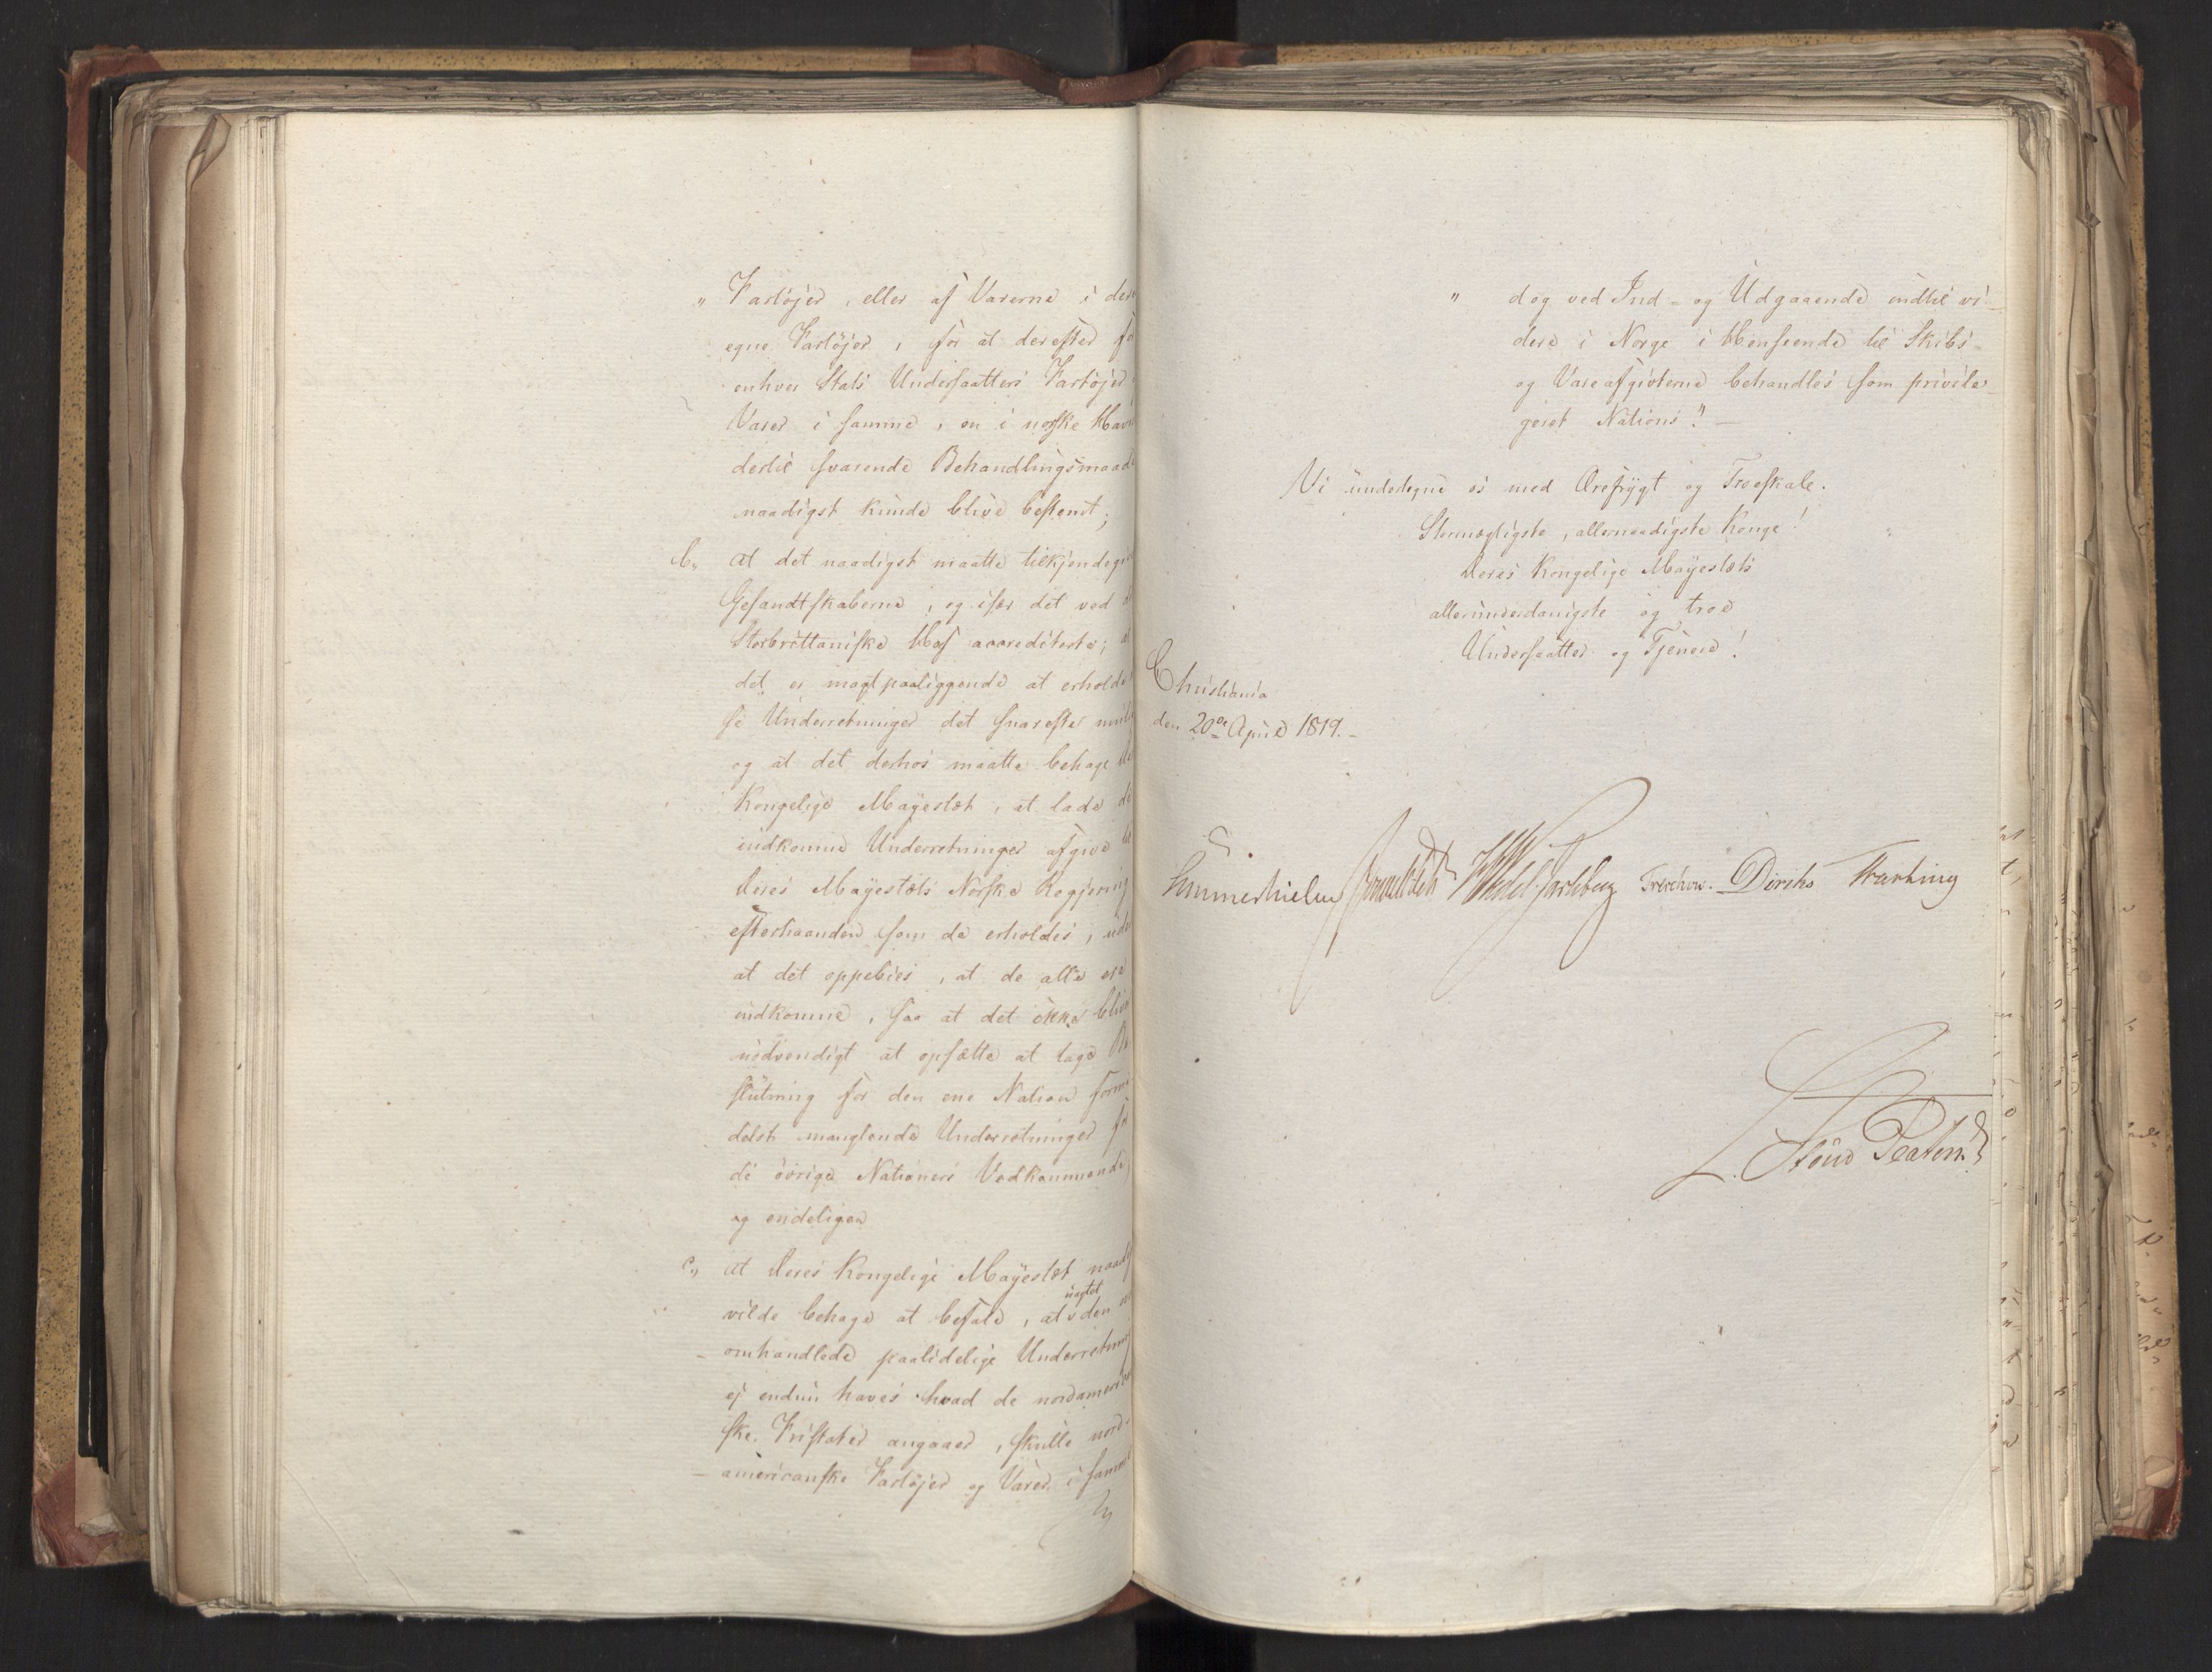 " Fartøjer, eller af Varerne i deres
egne Fartøjer, for at derefter for
enhver Stats Undersaatters Fartøjer
Varer i samme, en i norske Havne
dertil svarende Behandlingsmaade
naadigst kunde blive bestemt;
b, at det naadigst maatte tilkjendegives
Gesandtskaberne, og især det ved det
Storbrittaniske Hof accrediterte; at
det er magtpaaliggende at erholde
se Underretninger det snareste muligt
og at det derhos maatte behage Deres
Kongelige Mayestæt, at lade de
indkomne Underretninger afgive til
Deres Mayestæts Norske Regjering
efterhaanden som de erholdes, uden
at det oppebies, at de alle ere
indkomne, saa at det ikke bliver
nødvendigt at opsætte at tage Be-
slutning for den ene Nation forme-
delst manglende Underretninger for
de øvrige Nationers Vedkommende,
og endeligen
c, at Deres Kongelige Mayestæt naadigst
vilde behage at befale, at uagtet den
omhandlede paalidelige Underretning
ej endnu haves hvad de nordameri-
ske Fristater angaaer, skulle nord-
americanske Fartøjer og Varer i samme
" dog ved Ind- og Udgaaende indtil vi-
dere i Norge i Henseende til Skibs-
og Vareafgivterne behandles som privile-
geret Nations." -
Vi undertegne os med Ærefrygt og Troeskab.
Stormægtigste, allernaadigste Konge!
Deres Kongelige Mayestæts
allerunderdanigste og troe
Undersaatter og Tjenere!
Christiania
den 20de April 1819. -
Sommerhielm HWedel-Jarlsberg Treschow. Diriks Krarting